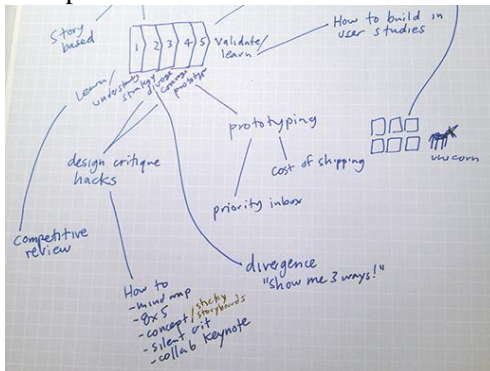 Story
based
1 2 3 4 5
Validate/
learn
How to build in
user studies
Learn/
understand
strategy
diverge
converge
prototype
prototyping
cost of shipping
priority inbox
unicorn
design critique
hacks
competitive
review
divergence
"show me 3 ways!"
How to
- mind map
- 8x5
- concept/sticky
storyboards
- silent crit
- collab keynote